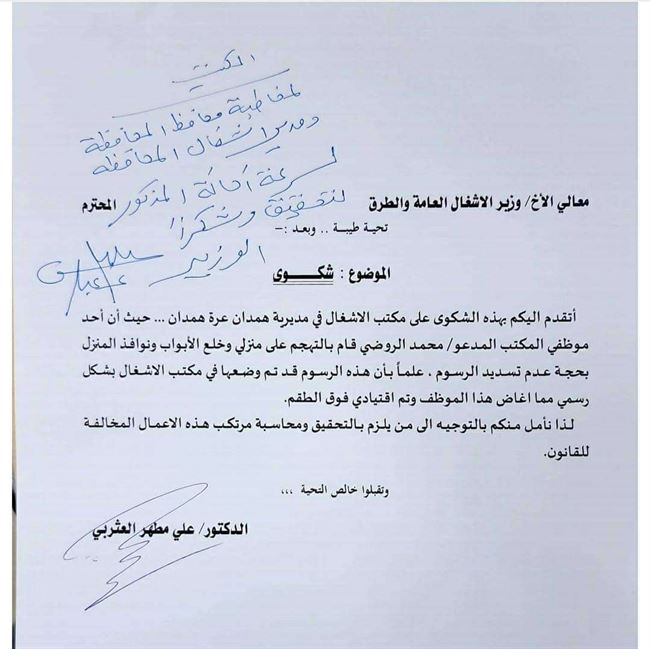 المكتب
لمخاطبة محافظ المحافظة
ومدير اشغال المحافظة
لسرعة احالة المذكور
للتحقيق وشكراً
الوزير
معالي الأخ/ وزير الاشغال العامة والطرق المحترم
تحية طيبة .. وبعد :-
الموضوع : شكوى
أتقدم اليكم بهذه الشكوى على مكتب الاشغال في مديرية همدان عرة همدان ... حيث أن أحد
موظفي المكتب المدعو/ محمد الروضي قام بالتهجم على منزلي وخلع الأبواب ونوافذ المنزل
بحجة عدم تسديد الرسوم ، علماً بأن هذه الرسوم قد تم وضعها في مكتب الاشغال بشكل
رسمي مما اغاض هذا الموظف وتم اقتيادي فوق الطقم.
لذا نأمل منكم بالتوجيه الى من يلزم بالتحقيق ومحاسبة مرتكب هذه الاعمال المخالفة
للقانون.
وتقبلوا خالص التحية ،،،
الدكتور/ علي مطهر العثربي